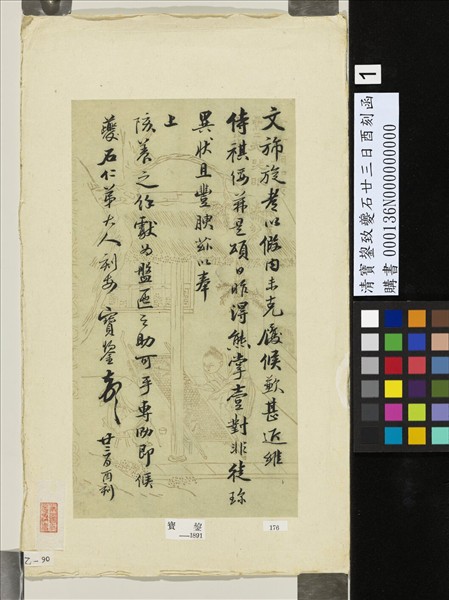 文旆旋以假内未克候歉甚近維
侍祺是頌日昨得熊掌壹對非徒珍
異狀且豐腴茲以奉
上
陔養之獻為盤匜之助可乎專泐即候
夔石仁弟大人刻安 寶鋆 廿三日酉刻
寶 鋆
——1891
176
乙-90
1
清寶鋆致夔石廿三日酉刻函
購書 000136N000000000